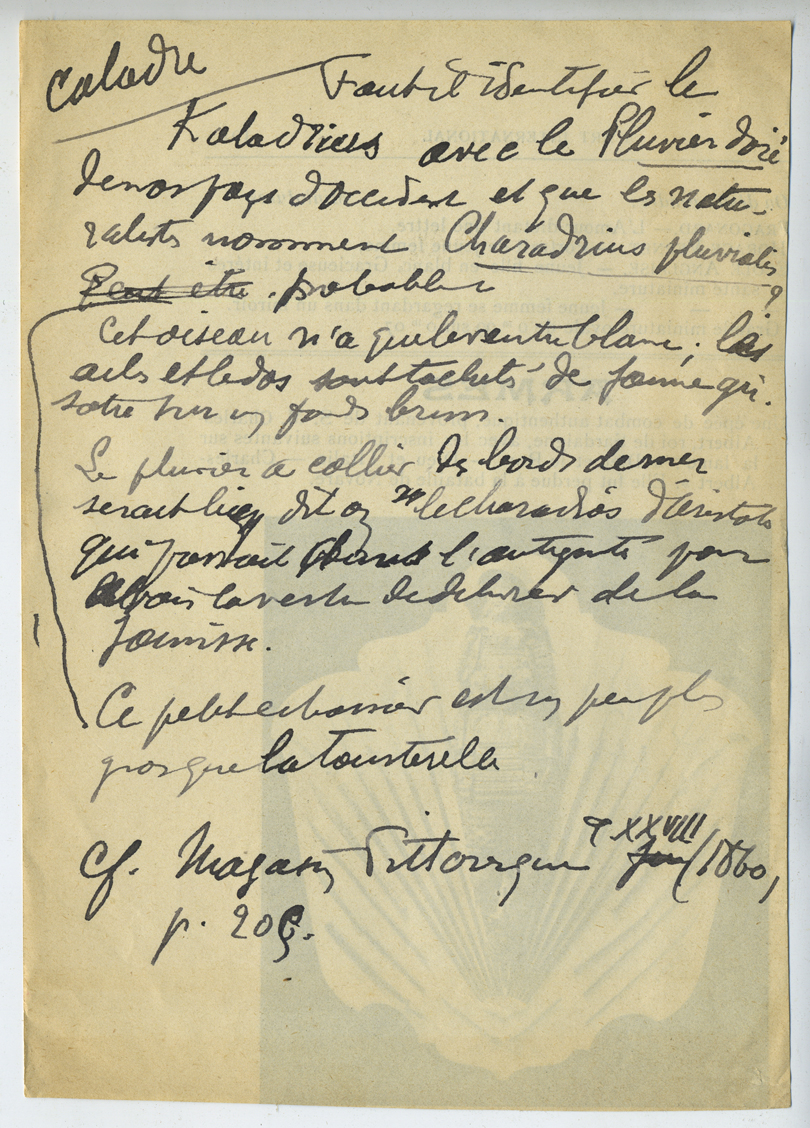 Caladre
Faut-il identifier le
Kaladrius avec le Pluvier doré
de nos pays d'occident et que les natu-
ralistes nomment Charadrius pluvialis
?
Peut être. probable
Cet oiseau n'a que le ventre blanc ; les
ailes et le dos sont tachetés de jaune gri-
sâtre sur un fond brun.
Le pluvier à collier des bords de mer
serait bien dit on le charadrios d'Aristote
qui passait dans l'antiquité pour
avoir la vertu de délivrer de la
jaunisse.
Ce petit échassier est un peu plus
gros que la tourterelle
cf. Magasin Pittoresque T. XXVIII
(1860,
p. 205.